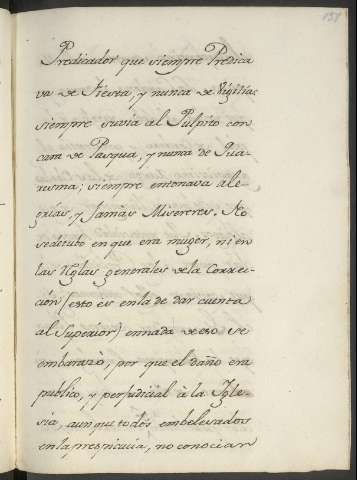 137
Predicador que siempre Predica
va de Fiesta, y nunca de Vigilia:
siempre suvia al Pulpito con
cara de Pasqua, y nunca de Qua-
resma; siempre entonava ale-
grias, y Jamàs Misereres. No
sedetubo en que era muger, ni en
las Reglas generales dela Correc-
ción (esto es enla de dar cuenta
al Superior) ennada de eso se
embarazò, por que el daño era
publico, y perjudicial à la Igle-
sia, aunque todos embelesados
enla prespicucia, no conocian